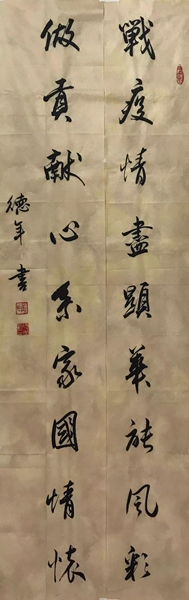 戰疫情盡顯華族風彩
做貢献心系家國情懐
德年書